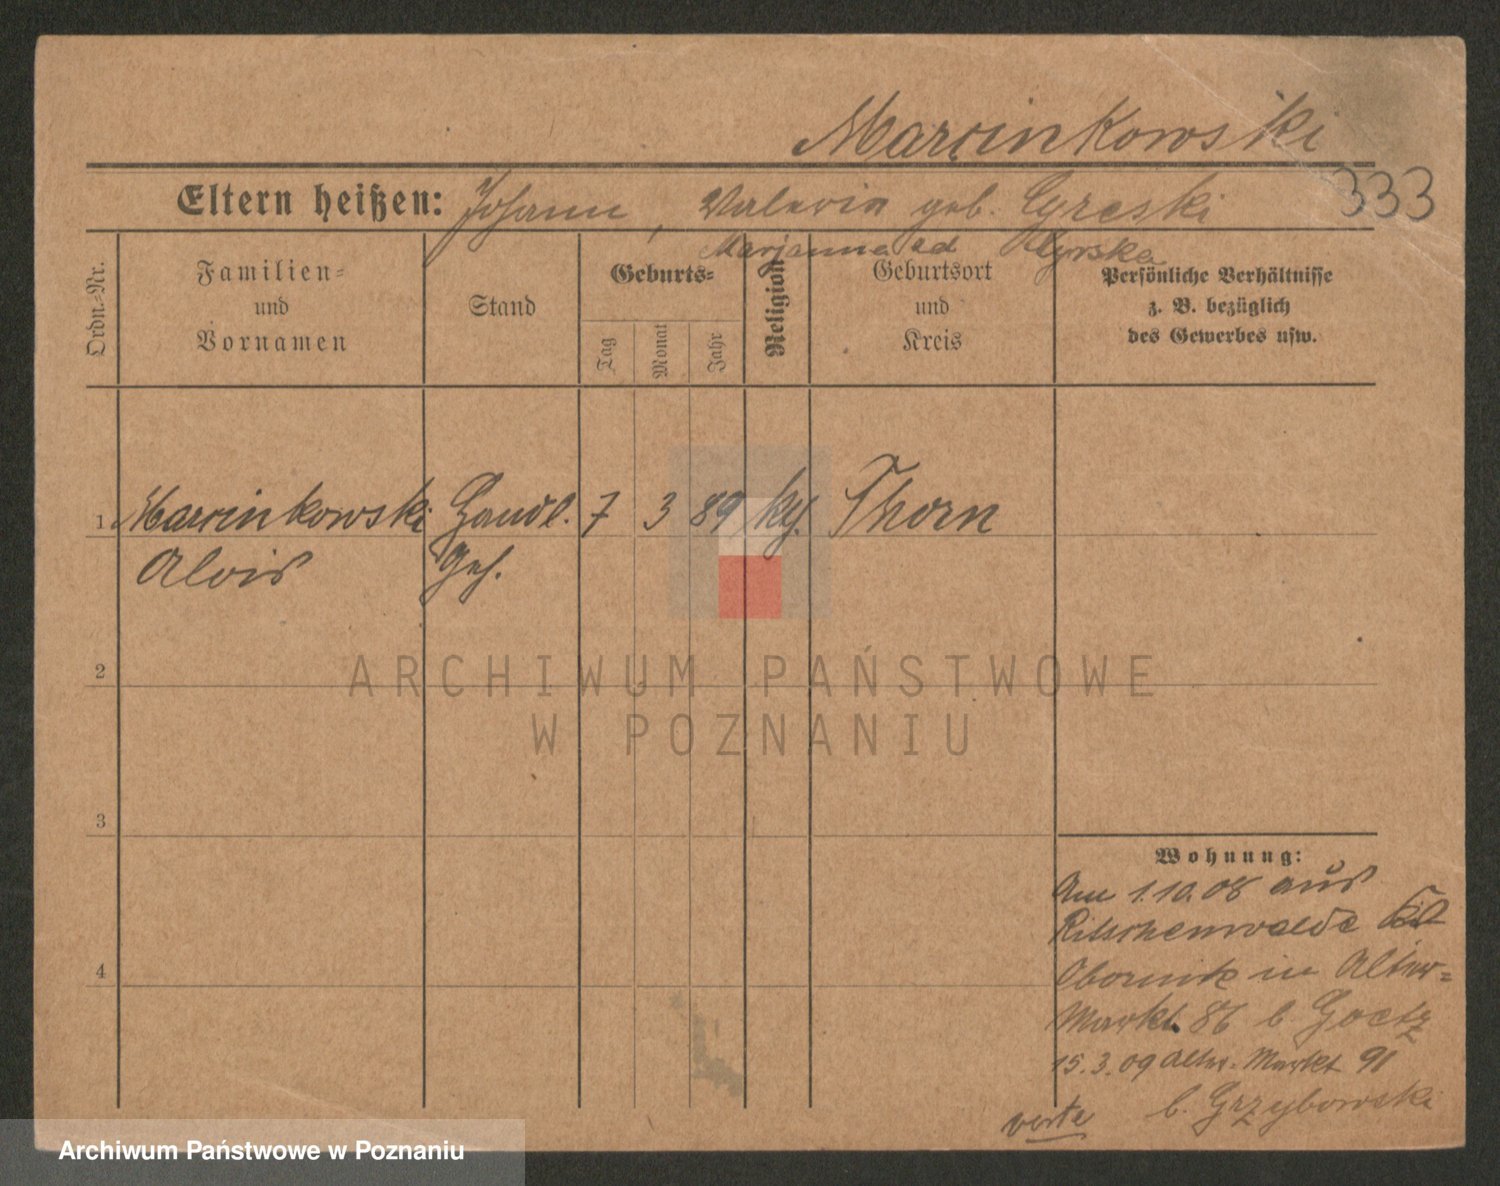 Marcinkowski
Eltern heißen: Johann, Valeria geb. Gyreski
333
Marjanna ed Gyrska
Ordn=Nr.
Familien=
und
Vornamen
Stand
Geburts=
Tag
Monat
Jahr
Religion
Geburtsort
und
Kreis
Persönliche Verhältnisse
z. B. bezüglich
des Gewerbes usw.
1 Marcinkowski Handl. 7 3 89 kth. Thorn
Alois Geh.
2
ARCHIWUM PAŃSTWOWE
W POZNANIU
3
4
Wohnung:
Am 1.10.08 aus
Ritschenwalde
Obornik in Alter=
Markt 86 b Goetz
15.3.09 Alter Markt 91
b. Grzybowski
verte
Archiwum Państwowe w Poznaniu